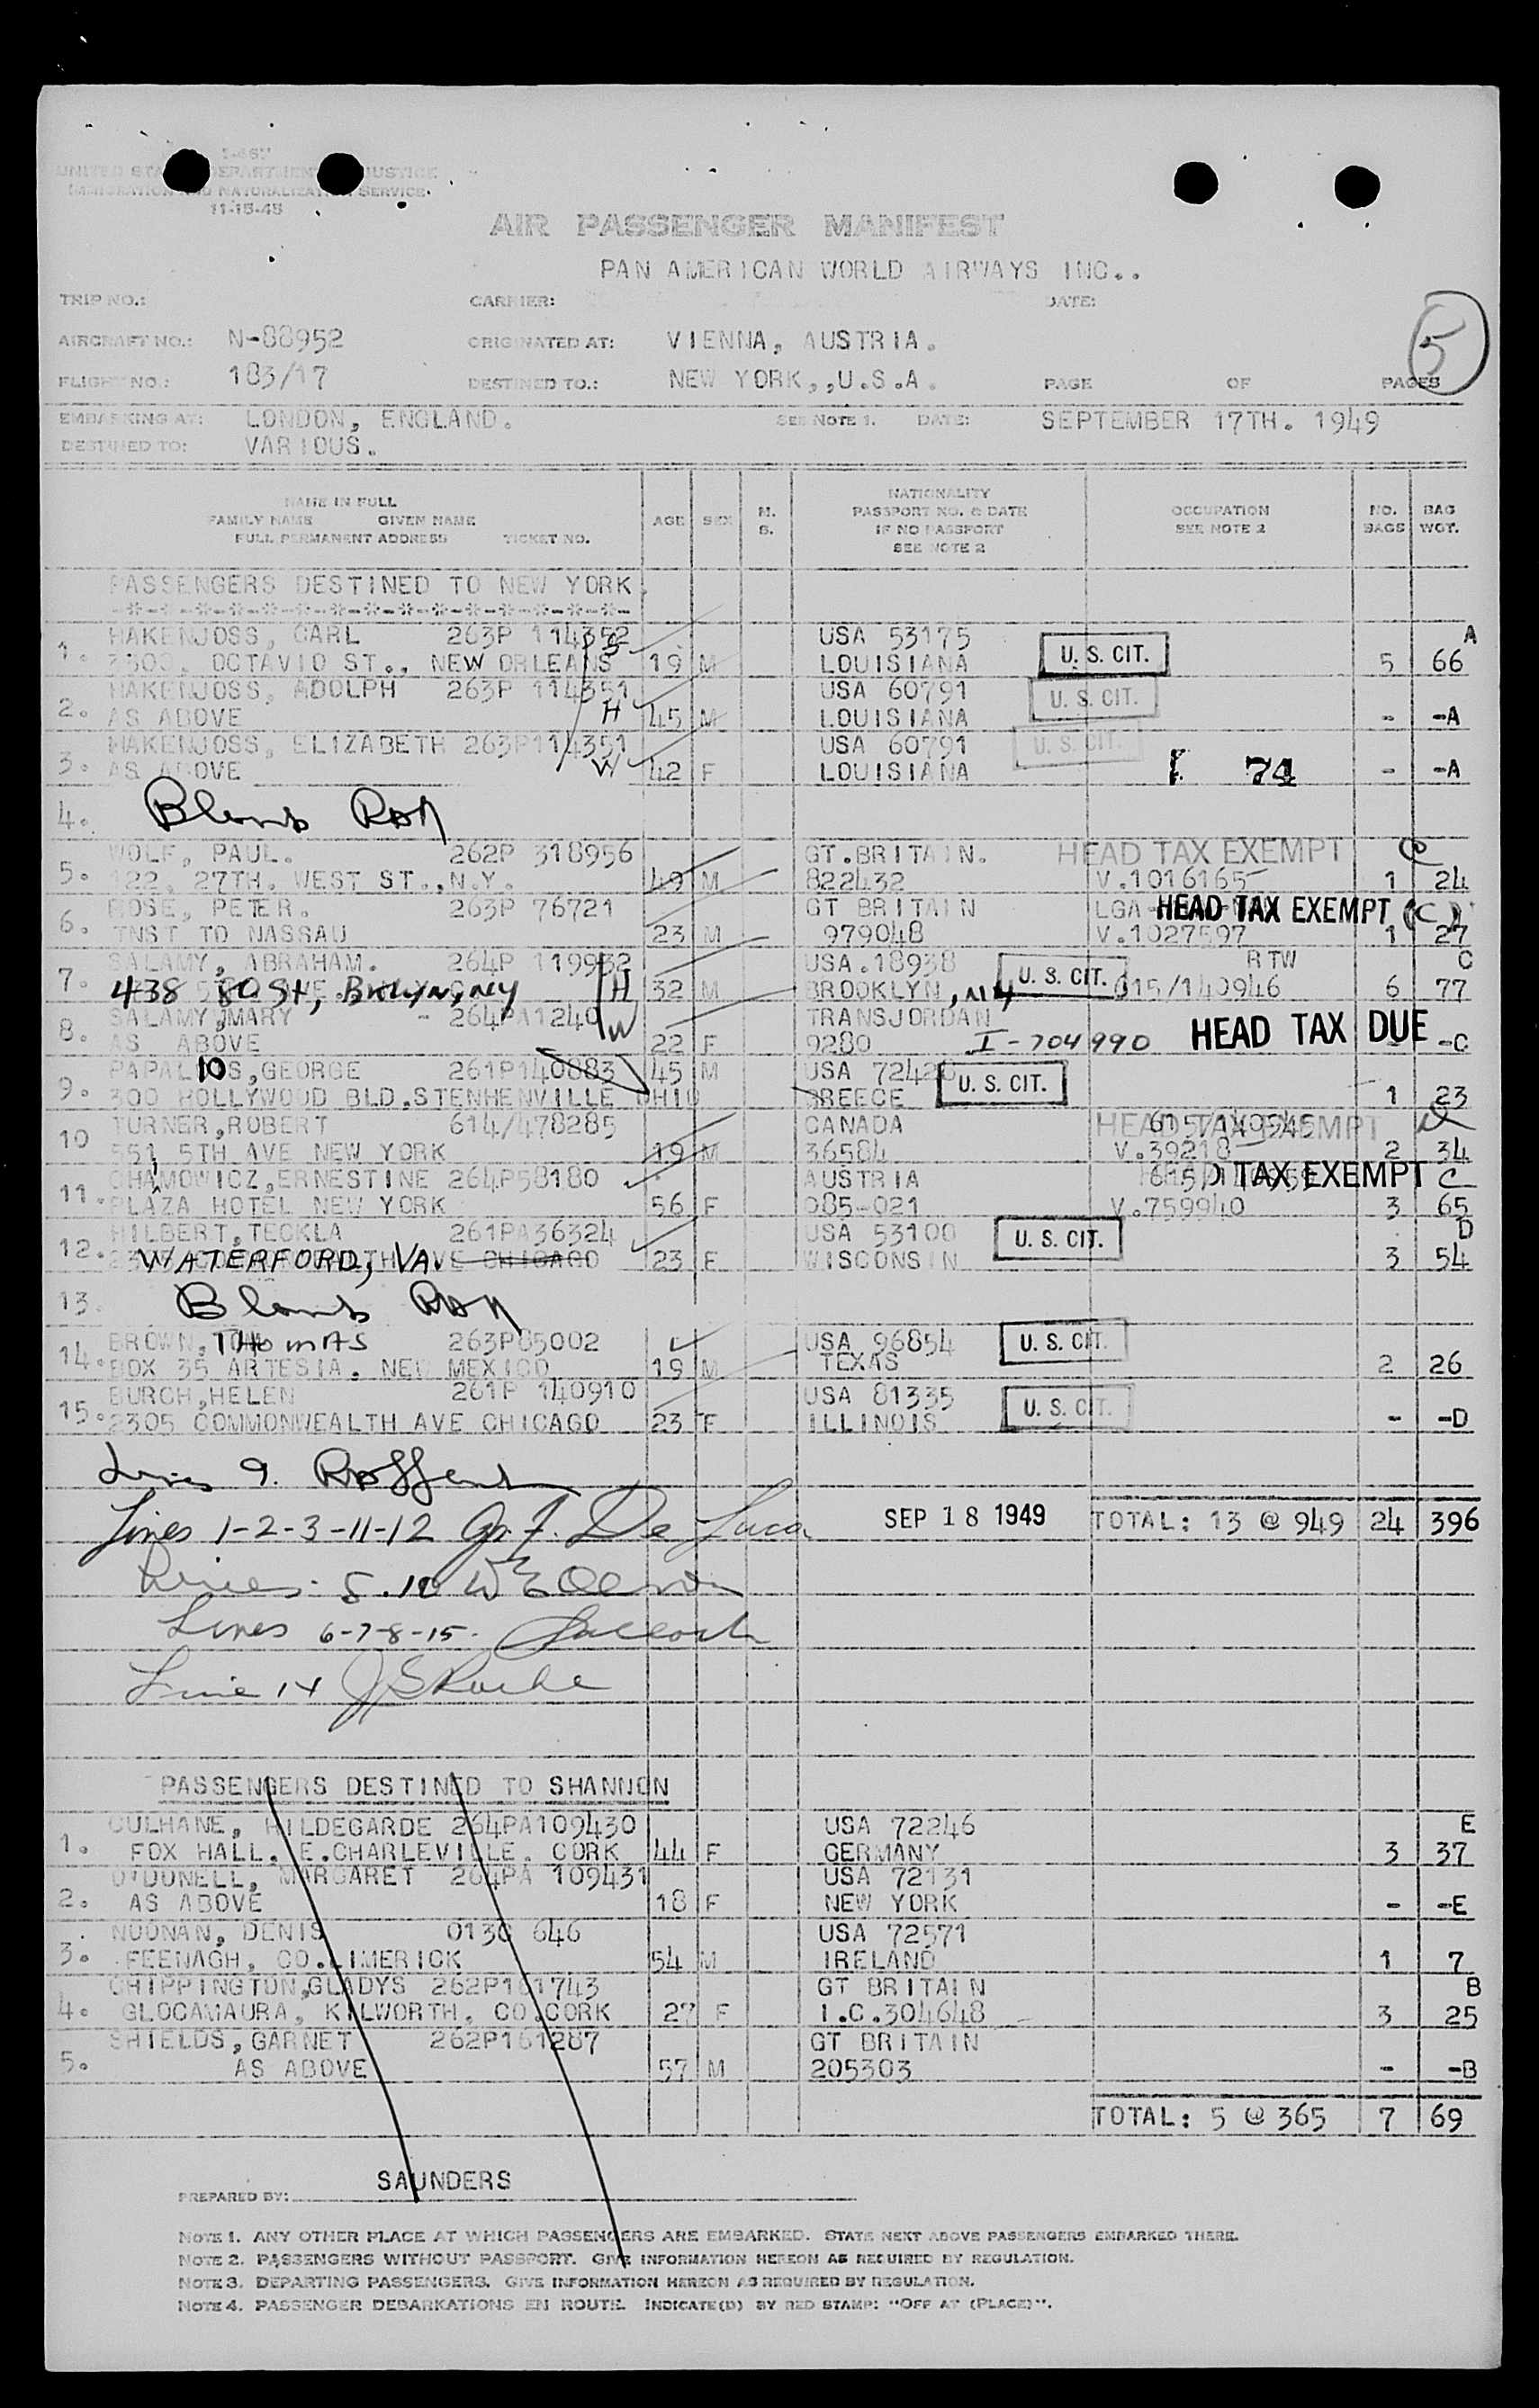 I-467
UNITED STATES DEPARTMENT OF JUSTICE
IMMIGRATION AND NATURALIZATION SERVICE
11-15-45
AIR PASSENGER MANIFEST
PAN AMERICAN WORLD AIRWAYS INC..
TRIP NO.: CARRIER: DATE:
5
AIRCRAFT NO.: N-88952 ORIGINATED AT: VIENNA, AUSTRIA.
FLIGHT NO.: 183/17 DESTINED TO.: NEW YORK,,U.S.A. PAGE OF PAGES
EMBARKING AT: LONDON, ENGLAND. SEE NOTE 1. DATE: SEPTEMBER 17TH. 1949
DESTINED TO: VARIOUS.
NAME IN FULL
FAMILY NAME GIVEN NAME
FULL PERMANENT ADDRESS TICKET NO.
AGE SEX M. S.
NATIONALITY
PASSPORT NO. & DATE
IF NO PASSPORT
SEE NOTE 2
OCCUPATION
SEE NOTE 2
NO. BAGS
BAG WGT.
PASSENGERS DESTINED TO NEW YORK.
-*-*-*-*-*-*-*-*-*-*-*-*-*-*-*-
HAKENJOSS, CARL 263P 114352 USA 53175 A
1. 2500. OCTAVIO ST., NEW ORLEANS S 19 M LOUISIANA U. S. CIT. 5 66
HAKENJOSS, ADOLPH 263P 114351 USA 60791 U. S. CIT.
2. AS ABOVE H 45 M LOUISIANA - -A
HAKENJOSS, ELIZABETH 263P114351 USA 60791 U. S. CIT.
3. AS ABOVE W 42 F LOUISIANA 74 - -A
4. Blank
WOLF, PAUL. 262P 318956 GT.BRITAIN. HEAD TAX EXEMPT C
5. 122. 27TH. WEST ST.,N.Y. 49 M 822432 V.1016165 1 24
ROSE, PETER. 263P 76721 GT BRITAIN LGA HEAD TAX EXEMPT (C)
6. TNST TO NASSAU 23 M 979048 V.1027597 1 27
SALAMY, ABRAHAM. 264P 119932 USA.18938 RTW C
7. 438 80 St, Bklyn, NY H 32 M BROOKLYN, NY U. S. CIT. 615/140946 6 77
SALAMY,MARY - 264PA1240 W TRANSJORDAN
8. AS ABOVE 22 F 9280 I-704990 HEAD TAX DUE - -C
PAPALIOS,GEORGE 261P140883 45 M USA 7242 U. S. CIT.
9. 300 HOLLYWOOD BLD.STENHENVILLE OHIO GREECE 1 23
TURNER,ROBERT 614/478285 CANADA HEAD TAX EXEMPT D
10 551 5TH AVE NEW YORK 19 M 36584 V.39218 2 34
CHAMOWICZ,ERNESTINE 264P58180 AUSTRIA HEAD TAX EXEMPT C
11. PLAZA HOTEL NEW YORK 56 F 085-021 V.759940 3 65
HILBERT,TECKLA 261PA36324 USA 53100 U. S. CIT. D
12. WATERFORD, VA. AVE CHICAGO 23 F WISCONSIN 3 54
13. Blank
BROWN, THOMAS 263P85002 USA 96854 U. S. CIT.
14. BOX 35 ARTESIA. NEW MEXICO 19 M TEXAS 2 26
BURCH,HELEN 261P 140910 USA 81335 U. S. CIT.
15. 2305 COMMONWEALTH AVE CHICAGO 23 F ILLINOIS - -D
Lines 9.
Lines 1-2-3-11-12 De Luca SEP 18 1949 TOTAL: 13 @ 949 24 396
Lines 5.10
Lines 6-7-8-15.
Line 14
PASSENGERS DESTINED TO SHANNON
CULHANE, HILDEGARDE 264PA109430 USA 72246 E
1. FOX HALL. E.CHARLEVILLE. CORK 44 F GERMANY 3 37
O'DONELL, MARGARET 264PA 109431 USA 72131
2. AS ABOVE 18 F NEW YORK - -E
NOONAN, DENIS 0130 646 USA 72571
3. FEENAGH, CO.LIMERICK 54 M IRELAND 1 7
CHIPPINGTON,GLADYS 262P161743 GT BRITAIN B
4. GLOCAMAURA, KILWORTH, CO.CORK 27 F I.C.304648 3 25
SHIELDS,GARNET 262P161287 GT BRITAIN
5. AS ABOVE 57 M 205303 - -B
TOTAL: 5 @ 365 7 69
PREPARED BY: SAUNDERS
NOTE 1. ANY OTHER PLACE AT WHICH PASSENGERS ARE EMBARKED. STATE NEXT ABOVE PASSENGERS EMBARKED THERE.
NOTE 2. PASSENGERS WITHOUT PASSPORT. GIVE INFORMATION HEREON AS REQUIRED BY REGULATION.
NOTE 3. DEPARTING PASSENGERS. GIVE INFORMATION HEREON AS REQUIRED BY REGULATION.
NOTE 4. PASSENGER DEBARKATIONS EN ROUTE. INDICATE(D) BY RED STAMP: "OFF AT (PLACE)".